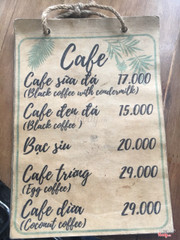 Cafe
Cafe sữa đá 17.000
(Black coffee with condermilk)
Cafe đen đá 15.000
(Black coffee)
Bạc sỉu 20.000
Cafe trứng 29.000
(Egg coffee)
Cafe dừa 29.000
(Coconut coffee)